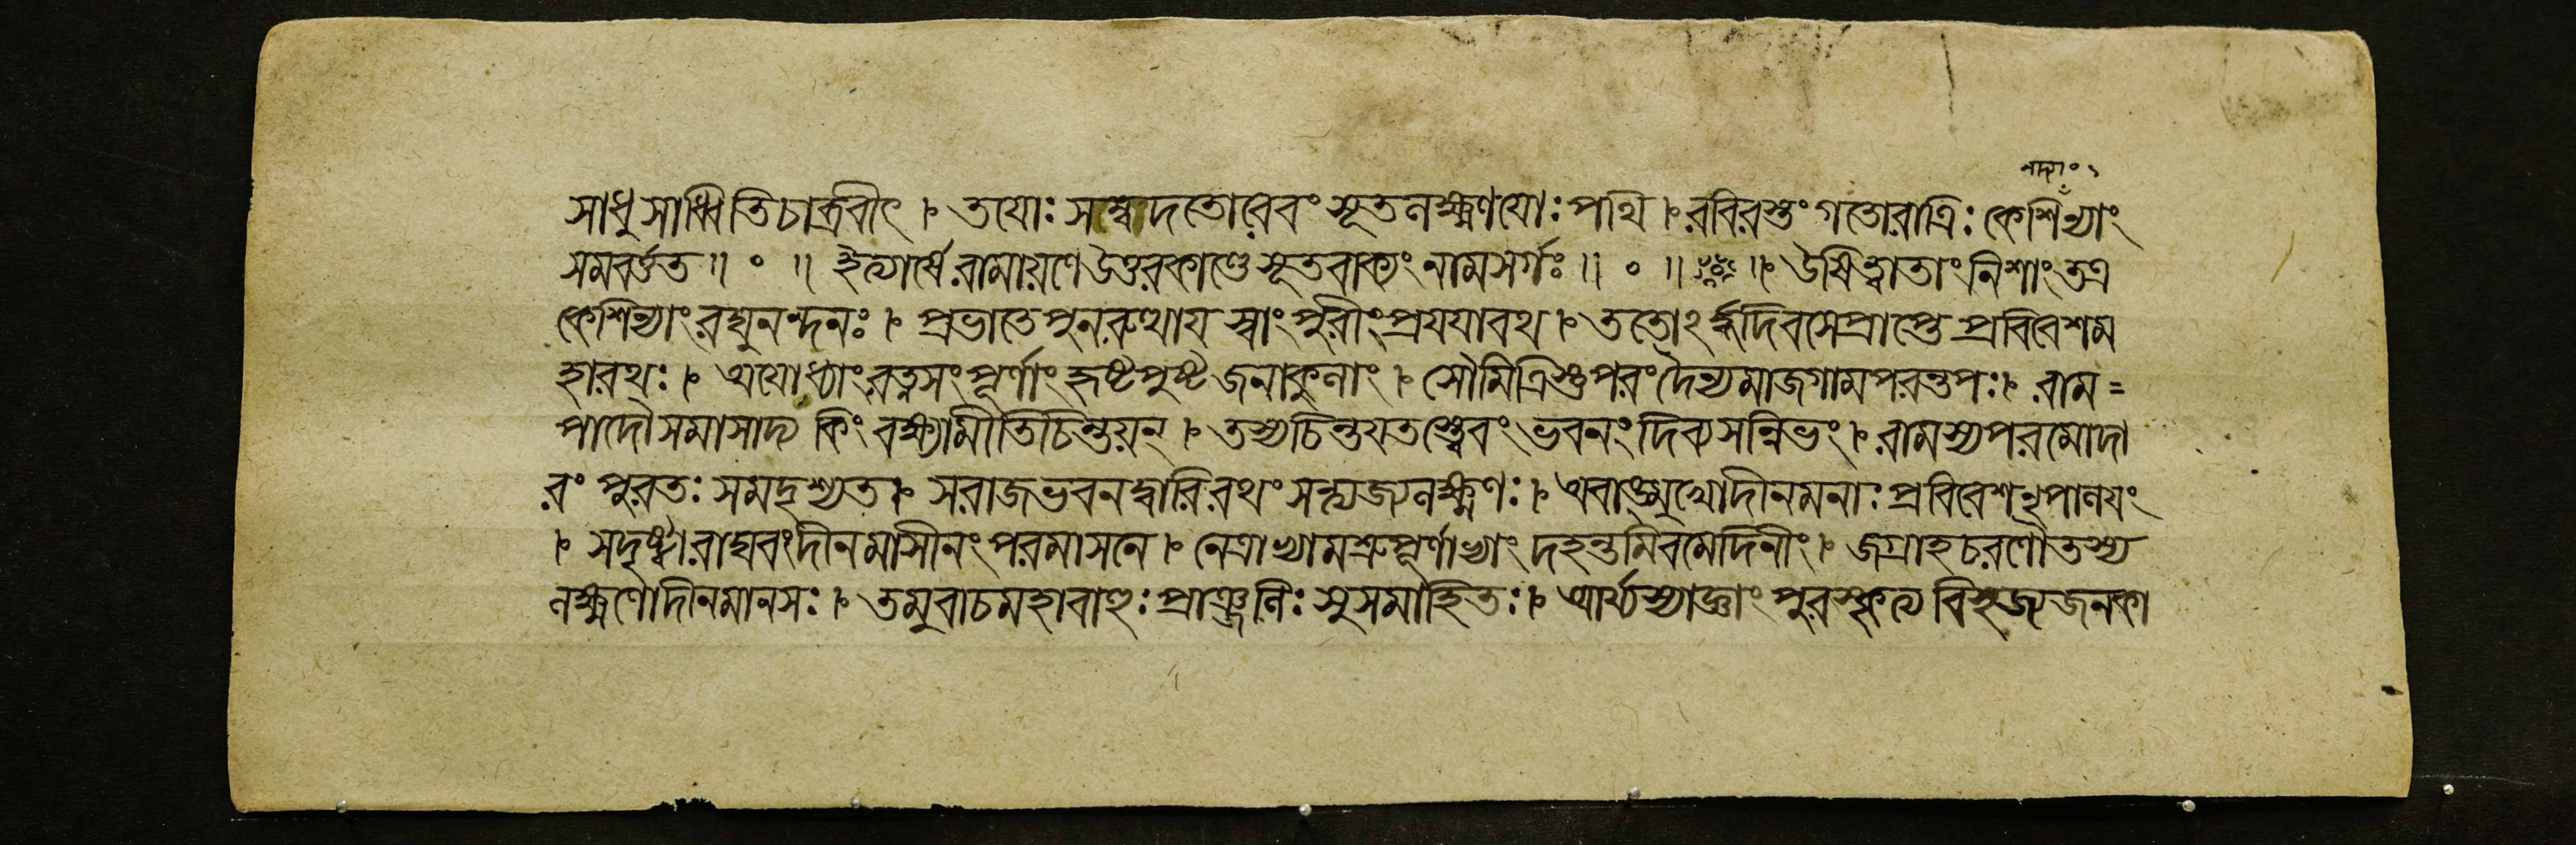 সাধু সাধ্বিতি চাব্রবীৎ ৷ তযোঃ সম্বদতোরেবং সূতলক্ষ্মণযোঃ পথি ৷ রবিরস্তং গতো রাত্রিঃ কেশিন্যাং
সমবর্ত্তত ॥ ০ ॥ ইত্যার্ষে রামায়ণে উত্তরকাণ্ডে সূতবাক্যং নাম সর্গঃ ॥ ০ ॥ ॥ উষিত্বা তাং নিশাং তত্র
কেশিন্যাং রঘুনন্দনঃ ৷ প্রভাতে পুনরুত্থায স্বাং পুরীং প্রযযাবথ ৷ ততোঽর্দ্ধদিবসে প্রাপ্তে প্রবিবেশ ম
হারথঃ ৷ অযোধ্যাং রত্নসংপূর্ণাং হৃষ্টপুষ্টজনাকুলাং ৷ সৌমিত্রিস্তু পরং দৈন্যমাজগাম পরন্তপঃ ৷ রাম=
পাদৌ সমাসাদ্য কিং বক্ষ্যামীতি চিন্তয়ন্ ৷ তস্য চিন্তযতস্ত্বেবং ভবনং দিব্যসন্নিভং ৷ রামস্য পরমোদা
রং পুরতঃ সমদৃশ্যত ৷ স রাজভবনদ্বারি রথং সন্ত্যজ্য লক্ষ্মণঃ ৷ অবাঙ্মুখো দীনমনাঃ প্রবিবেশ নৃপালযং
৷ স দৃষ্ট্বা রাঘবং দীনমাসীনং পরমাসনে ৷ নেত্রাভ্যামশ্রুপূর্ণাভ্যাং দহন্তমিব মেদিনীং ৷ জগ্রাহ চরণৌ তস্য
লক্ষ্মণো দীনমানসঃ ৷ তমুবাচ মহাবাহুঃ প্রাঞ্জলিঃ সুসমাহিতঃ ৷ আর্য্যস্যাজ্ঞাং পুরস্কৃত্য বিসৃজ্য জনকা